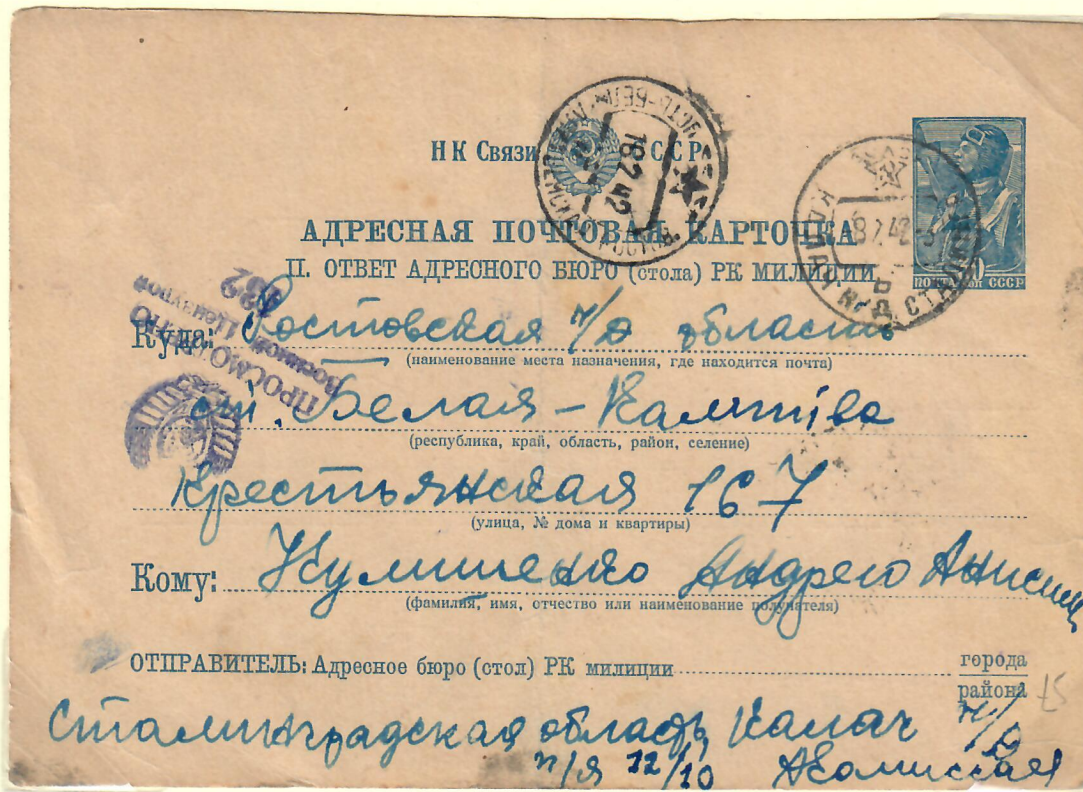 НК Связи СССР
АДРЕСНАЯ ПОЧТОВАЯ КАРТОЧКА
П. ОТВЕТ АДРЕСНОГО БЮРО (стола) РК МИЛИЦИИ
ПОЧТА СССР
18 2 42
КАЛАЧ СТАЛИНГ
ПРОСМОТРЕНО
Военной Цензурой
Куда: Ростовская ж/д область
(наименование места назначения, где находится почта)
ст. Белая-Калитва
(республика, край, область, район, селение)
Крестьянская 167
(улица, № дома и квартиры)
Кому: Кулишенко Андрею Анисим
(фамилия, имя, отчество или наименование получателя)
ОТПРАВИТЕЛЬ: Адресное бюро (стол) РК милиции города
района
15
Сталинградская область, Калач
п/я 12/10